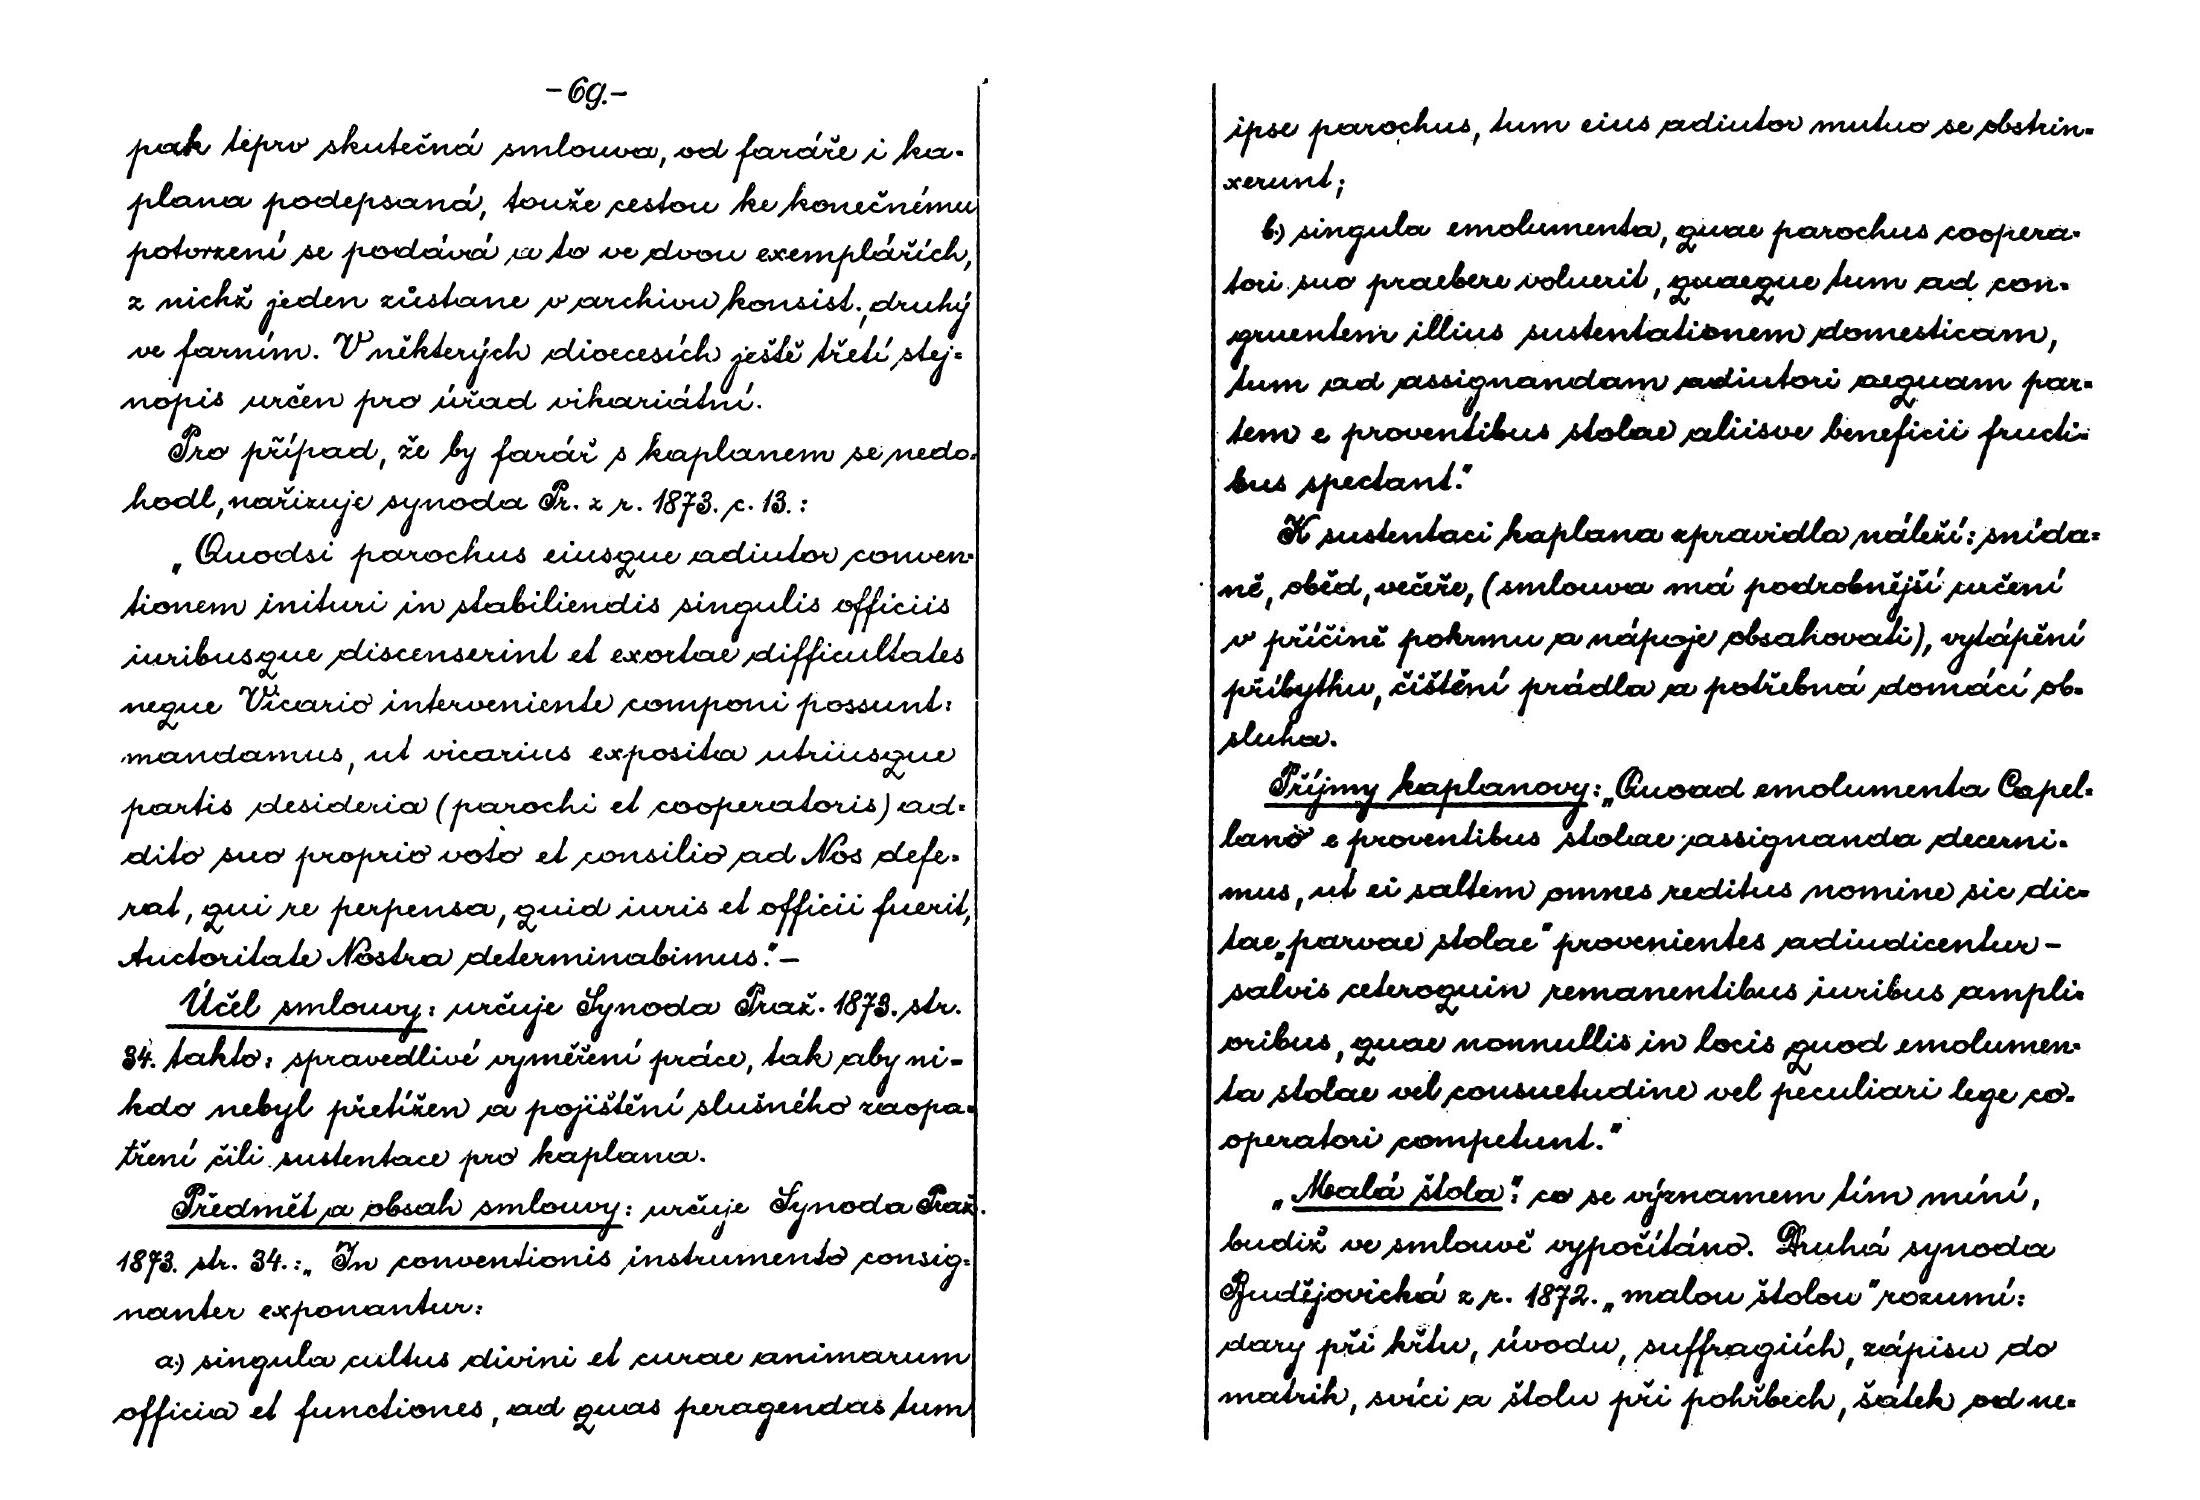 -69.-
pak teprv skutečná smlouva, od faráře i ka-
plana podepsaná, touže cestou ke konečnému
potvrzení se podává a to ve dvou exemplářích,
z nichž jeden zůstane v archivu konsist., druhý
ve farním. V některých dioecesích ještě třetí stej-
nopis určen pro úřad vikariátní.
Pro případ, že by farář s kaplanem se nedo-
hodl, nařizuje synoda Pr. z r. 1873. c. 13.:
„Quodsi parochus eiusque adiutor conven-
tionem inituri in stabiliendis singulis officiis
iuribusque discenserint et exortae difficultates
neque Vicario interveniente componi possunt:
mandamus, ut vicarius exposita utriusque
partis desideria (parochi et cooperatoris) ad-
dito suo proprio voto et consilio ad Nos defe-
rat, qui re perpensa, quid iuris et officii fuerit,
Auctoritate Nostra determinabimus." –
Účel smlouvy: určuje Synoda Praž. 1873. str.
34. takto: spravedlivé vyměření práce, tak aby ni-
kdo nebyl přetížen a pojištění slušného zaopa-
tření čili sustentace pro kaplana.
Předmět a obsah smlouvy: určuje Synoda Praž.
1873. str. 34.: „In conventionis instrumento consig-
nanter exponantur:
a.) singula cultus divini et curae animarum
officia et functiones, ad quas peragendas tum
ipse parochus, tum eius adiutor mutuo se obstrin-
xerunt;
b.) singula emolumenta, quae parochus coopera-
tori suo praebere voluerit, quaeque tum ad con-
gruentem illius sustentationem domesticam,
tum ad assignandam adiutori aequam par-
tem e proventibus stolae aliisve beneficii fructi-
bus spectant."
K sustentaci kaplana zpravidla náleží: snída-
ně, oběd, večeře, (smlouva má podrobnější určení
v příčině pokrmu a nápoje obsahovati), vytápění
příbytku, čištění prádla a potřebná domácí ob-
sluha.
Příjmy kaplanovy: „Quoad emolumenta Capel-
lano e proventibus stolae assignanda decerni-
mus, ut ei saltem omnes reditus nomine sic dic-
tae „parvae stolae" provenientes adiudicentur –
salvis ceteroquin remanentibus iuribus ampli-
oribus, quae nonnullis in locis quod emolumen-
ta stolae vel consuetudine vel peculiari lege co-
operatori competunt."
„Malá štola": co se významem tím míní,
budiž ve smlouvě vypočítáno. Druhá synoda
Budějovická z r. 1872. „malou štolou" rozumí:
dary při křtu, úvodu, suffragiích, zápisu do
matrik, svíci a štolu při pohřbech, šátek od ne-